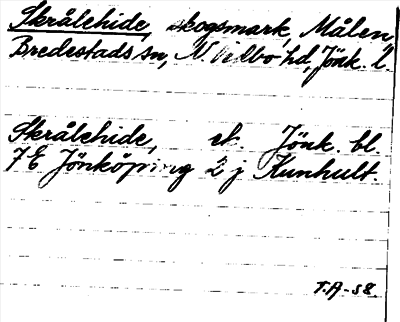 Skrålehide, skogsmark, Målen,
Bredestads sn, N. Vedbo hd, Jönk. l.
Skrålehide, ek. Jönk. bl.
7E Jönköping 2 j Kunhult.
T.A-58